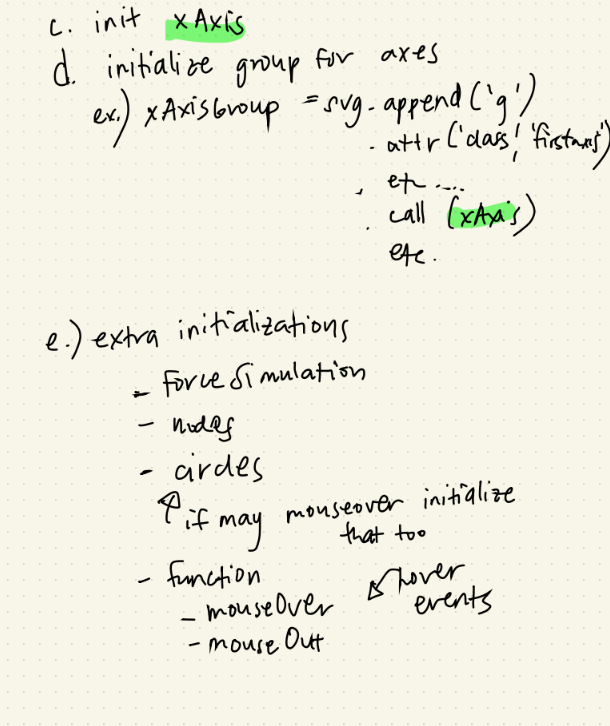 c. init xAxis
d. initialize group for axes
ex.) xAxisGroup = svg.append('g')
.attr('class', 'firstaxis')
. etc ....
. call (xAxis)
etc.
e.) extra initializations
- force simulation
- nodes
- circles
↑ if may mouseover initialize
that too
- function
- mouseOver
- mouseOut
↙ hover
events